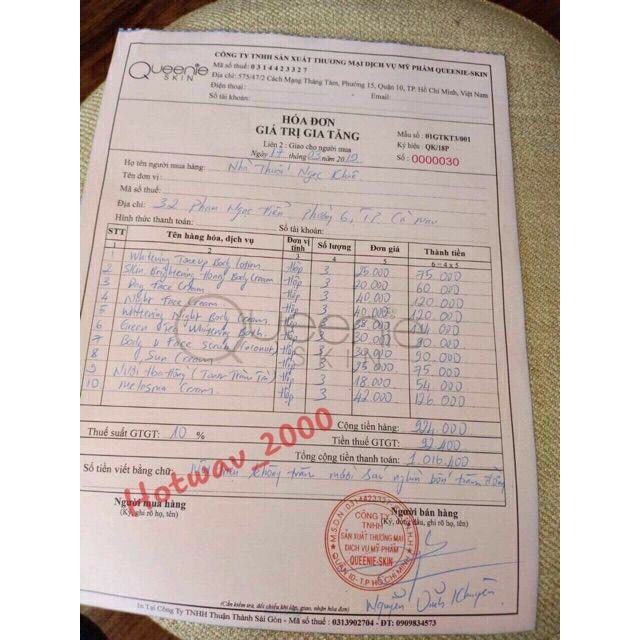 Queenie
SKIN
CÔNG TY TNHH SẢN XUẤT THƯƠNG MẠI DỊCH VỤ MỸ PHẨM QUEENIE-SKIN
Mã số thuế: 0314423327
Địa chỉ: 575/47/2 Cách Mạng Tháng Tám, Phường 15, Quận 10, TP. Hồ Chí Minh, Việt Nam
Điện thoại: Email:
Số tài khoản:
HÓA ĐƠN
GIÁ TRỊ GIA TĂNG
Liên 2: Giao cho người mua
Ngày 17 tháng 03 năm 2019
Mẫu số: 01GTKT3/001
Ký hiệu: QK/18P
Số: 0000030
Họ tên người mua hàng: Nhà Thuốc Ngọc Khuê
Tên đơn vị:
Mã số thuế:
Địa chỉ: 32 Phan Ngọc Hiển Phường 6, TP. Cà Mau
Hình thức thanh toán: Số tài khoản:
STT Tên hàng hóa, dịch vụ Đơn vị tính Số lượng Đơn giá Thành tiền
1 2 3 4 5 6=4x5
1 Whitening Toneup Body Lotion Hộp 3 25.000 75.000
2 Skin Brightening Body Cream Hộp 3 20.000 60.000
3 Day Face Cream Hộp 3 40.000 120.000
4 Night Face Cream Hộp 3 40.000 120.000
5 Whitening Night Body Cream Hộp 3 38.000 114.000
6 Green Tea Whitening Bath Hộp 3 30.000 90.000
7 Body & Face Scrub (Coconut) Hộp 3 30.000 90.000
8 Sun Cream Hộp 3 25.000 75.000
9 Nước Hoa Hồng Hộp 3 18.000 54.000
10 Melasma Cream Hộp 3 42.000 126.000
Queenie
SKIN
Cộng tiền hàng: 924.000
Thuế suất GTGT: 10 % Tiền thuế GTGT: 92.400
Tổng cộng tiền thanh toán: 1.016.400
Số tiền viết bằng chữ: Một triệu không trăm mười sáu nghìn bốn trăm đồng
Hotwav_2000
Người mua hàng
(Ký, ghi rõ họ, tên)
Người bán hàng
(Ký, đóng dấu, ghi rõ họ, tên)
M.S.D.N: 0314423327
CÔNG TY
TNHH
SẢN XUẤT THƯƠNG MẠI
DỊCH VỤ MỸ PHẨM
QUEENIE-SKIN
QUẬN 10 - T.P HỒ CHÍ MINH
Nguyễn Khuyên
(Cần kiểm tra, đối chiếu khi lập, giao, nhận hóa đơn)
In Tại Công Ty TNHH Thuận Thành Sài Gòn - Mã số thuế: 0313902704 - ĐT: 0909834573